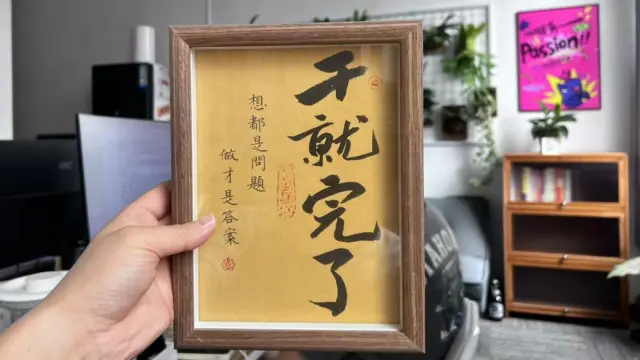 干就完了
想都是问题
做才是答案
Passion!!